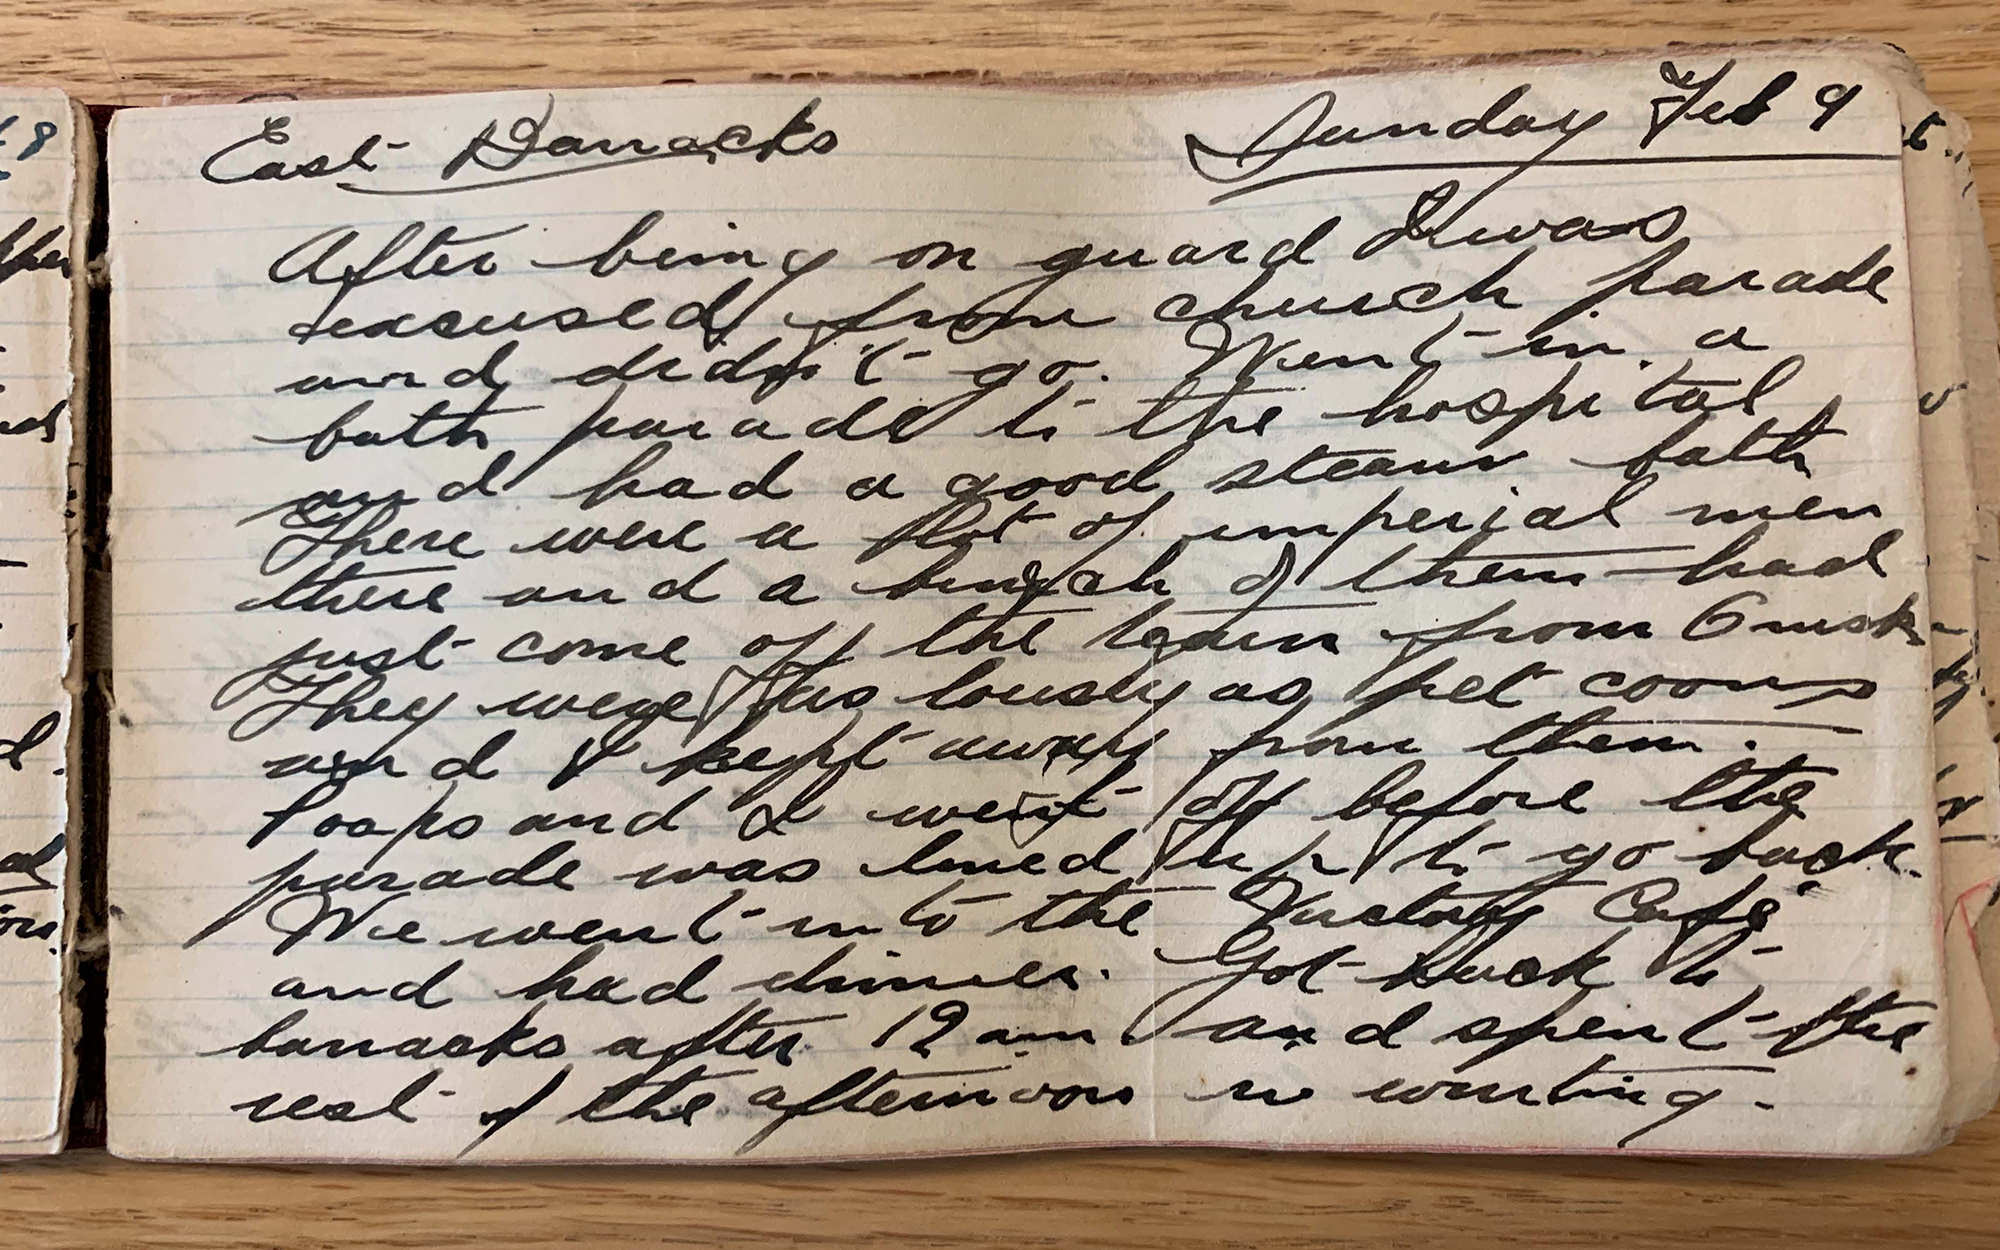 East Barracks Sunday Feb 9
After being on guard I was
excused from church parade
and didn't go. Went in a
bath parade to the hospital
and had a good steam bath
There were a lot of imperial men
there and a bunch of them had
just come off the train from Omsk
They were as lousy as pet coons
and I kept away from them.
Poaps and I went off before the
parade was lined up to go back.
We went into the Victory Café
and had dinner. Got back to
barracks after 12 am and spent the
rest of the afternoon in writing.